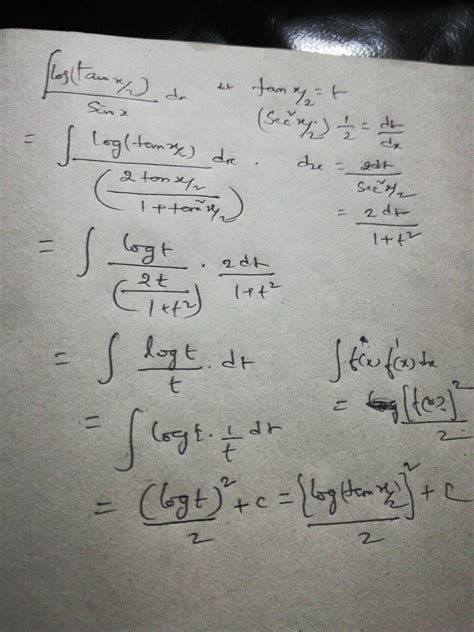 ∫ log(tan x/2) / Sin x dx  let tan x/2 = t
(Sec² x/2) 1/2 = dt/dx
= ∫ log(tan x/2) / (2 tan x/2 / 1 + tan² x/2) dx .  dx = 2dt / Sec² x/2
= 2 dt / 1 + t²
= ∫ log t / (2t / 1 + t²) . 2 dt / 1 + t²
= ∫ log t / t . dt  ∫ f(x) f'(x) dx
= [f(x)]² / 2
= ∫ log t . 1/t dt
= (log t)² / 2 + c = [log(tan x/2)]² / 2 + c